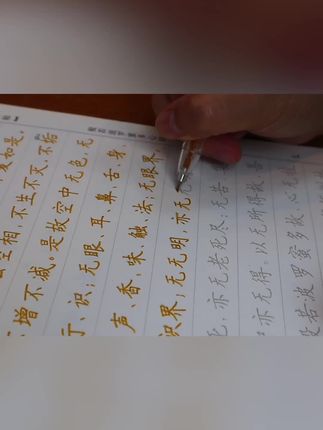 如是。
空相，不生不灭，不垢
增不减。是故空中无色，无
行，识；无眼、耳、鼻、舌、身、
声、香、味、触、法；无眼界
识界；无无明，亦无
亦无老死尽；无苦
亦无得。以无所得故，
般若波罗蜜多故，心无